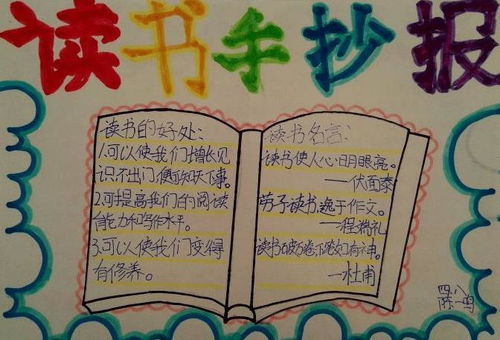 读书手抄报
读书的好处:
1.可以使我们增长见
识,不出门,便可知天下事。
2.可提高我们的阅读
能力和写作水平。
3.可以使我们变得
有修养。
读书名言:
读书使人心明眼亮。
——伏尔泰
劳于读书,逸于作文。
——程端礼
读书破万卷,下笔如有神。
——杜甫
四、八
陈一鸣